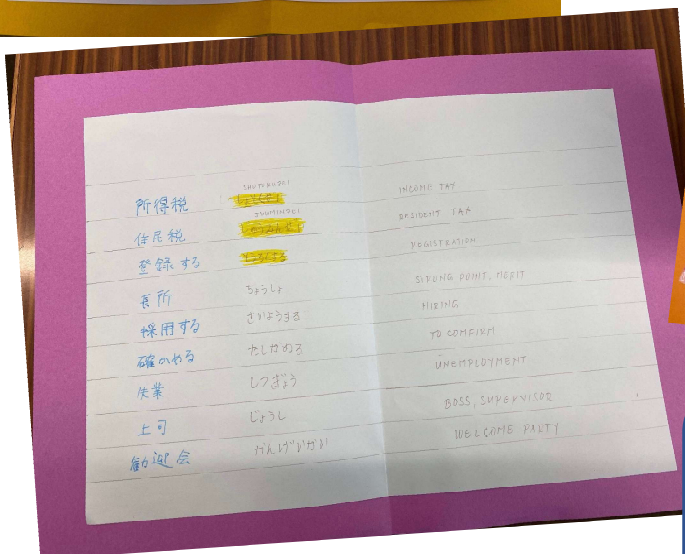 所得税 INCOME TAX
住民税 JUUMINZEI RESIDENT TAX
登録する REGISTRATION
長所 ちょうしょ STRONG POINT, MERIT
採用する さいようする HIRING
確かめる たしかめる TO CONFIRM
失業 しつぎょう UNEMPLOYMENT
上司 じょうし BOSS, SUPERVISOR
歓迎会 かんげいかい WELCOME PARTY